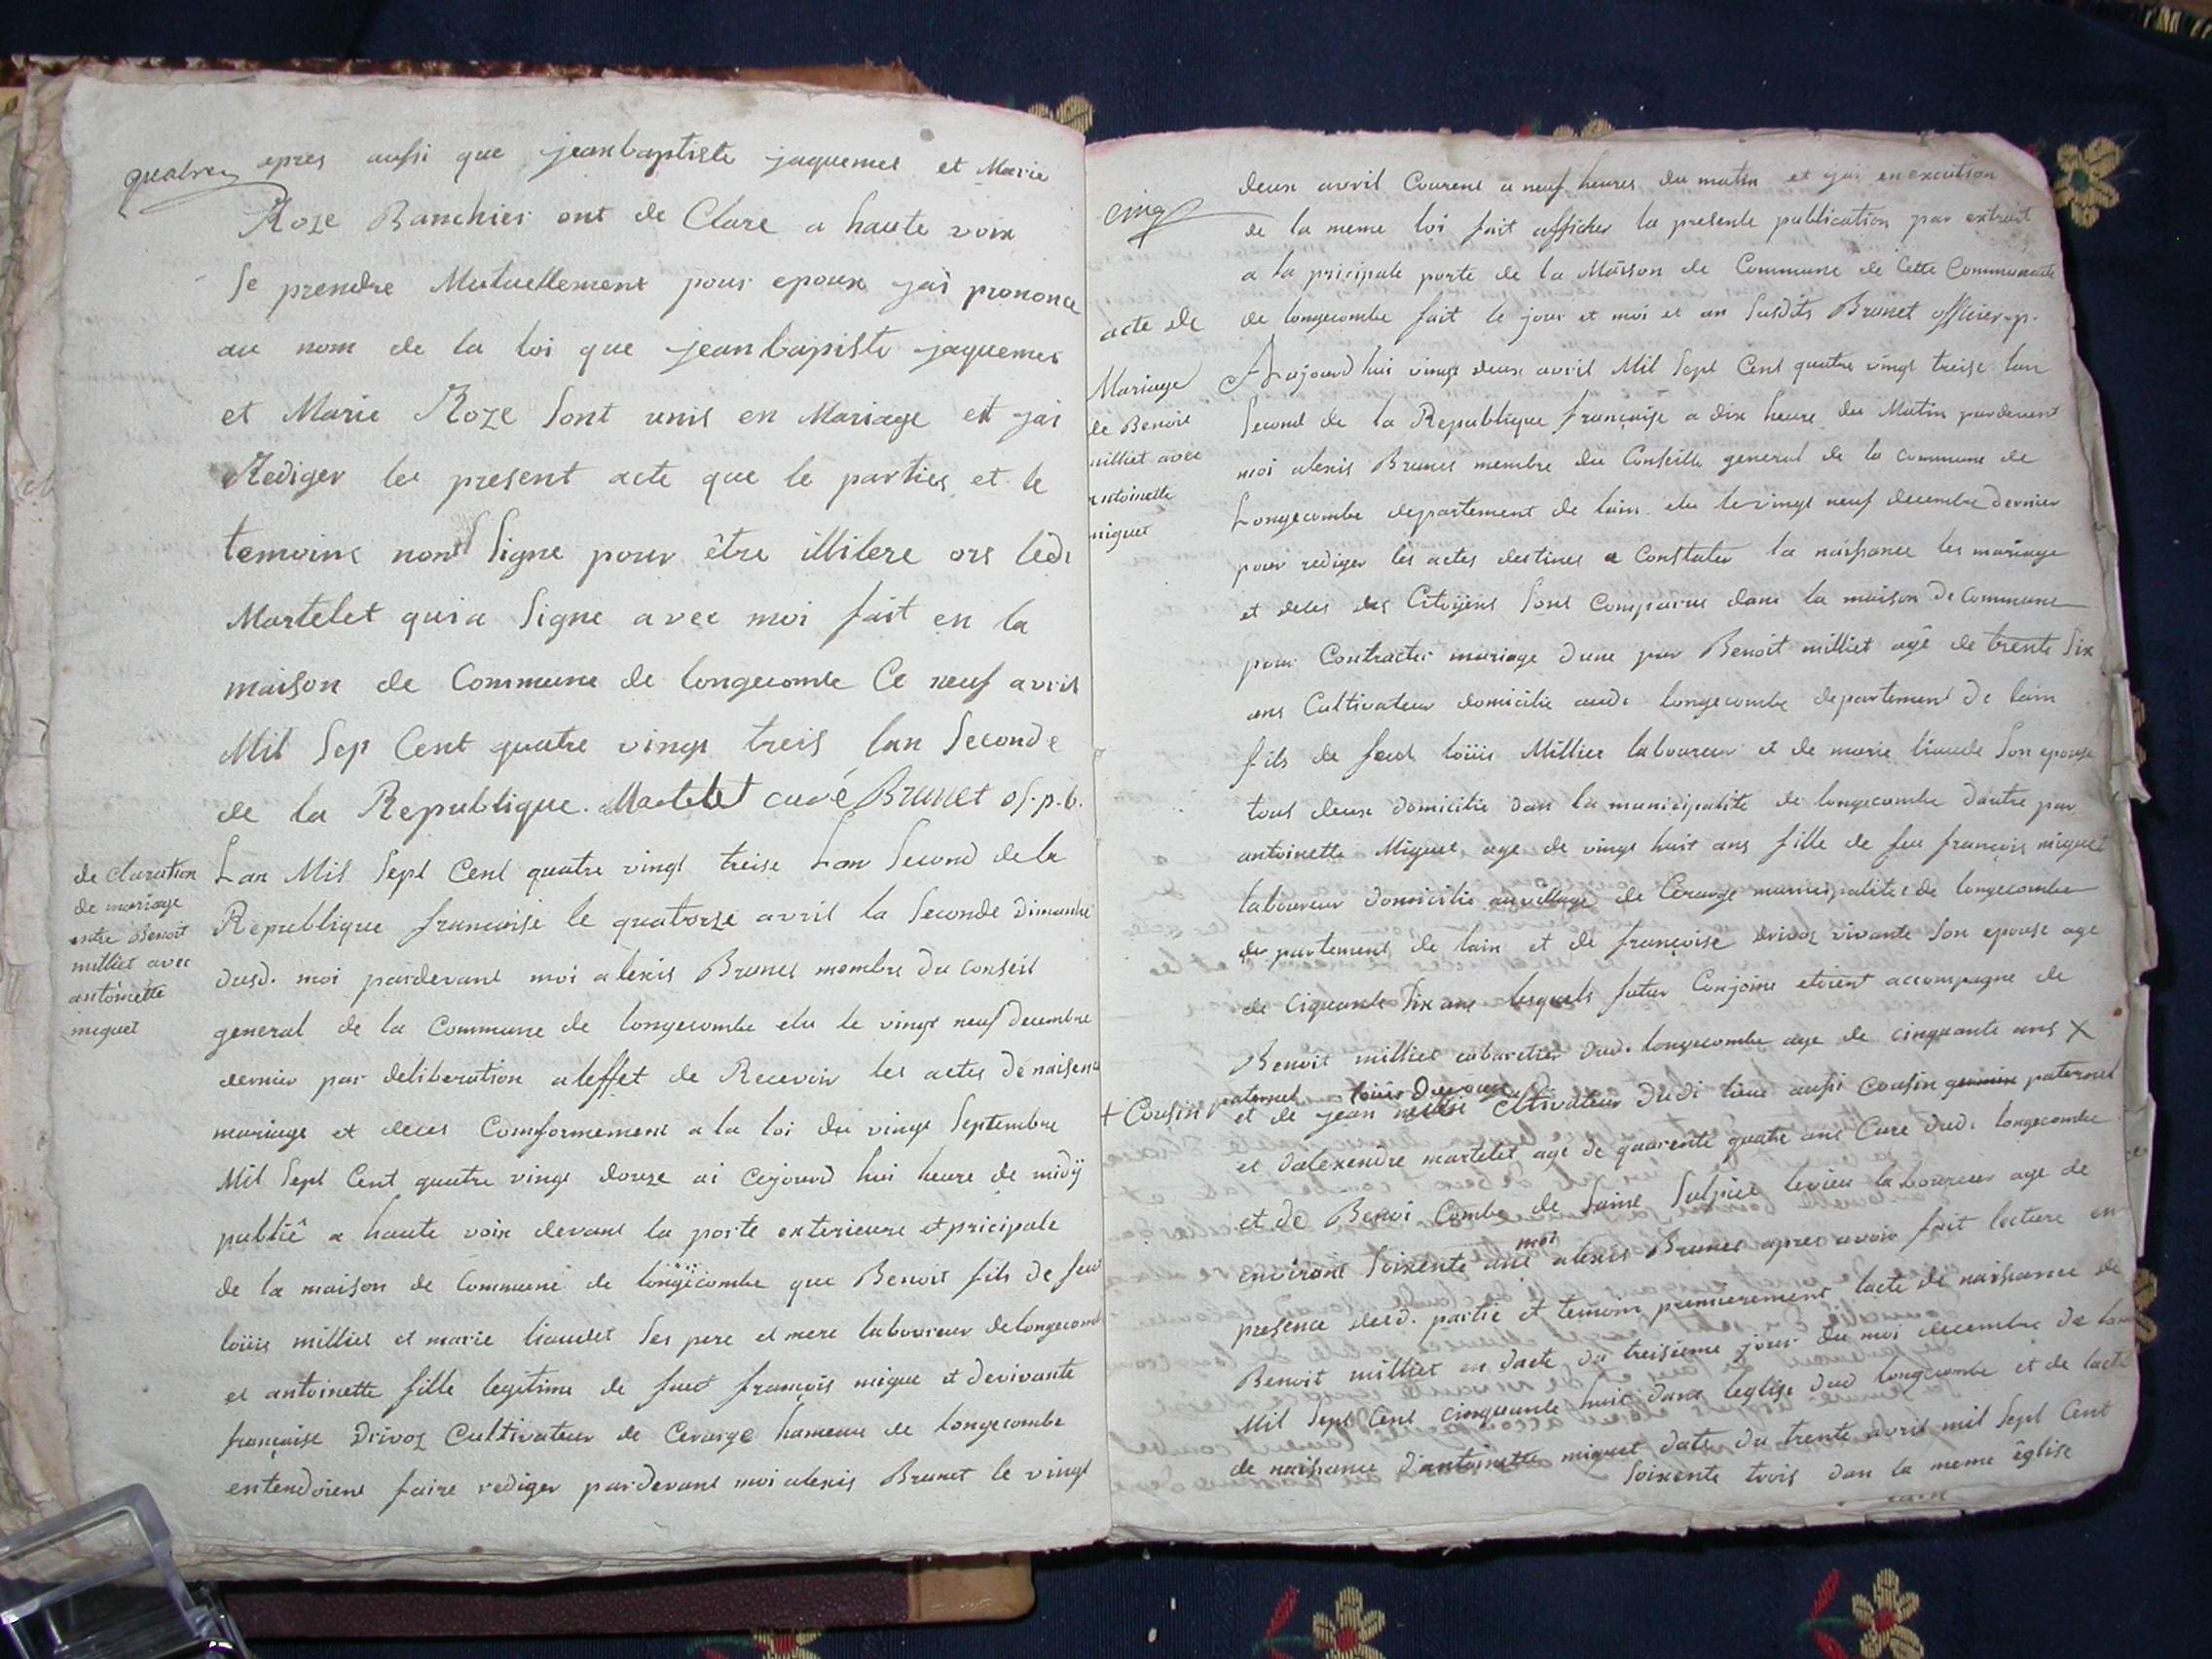 quatre
apres aussi que jeanbaptiste jaquemet et Marie
Roze Banchier ont de Clare a haute voix
Se prendre Mutuellement pour epoux jai prononce
au nom de la loi que jeanbapiste jaquemet
et Marie Roze Sont unis en Mariage et jai
Rediger le present acte que le parties et le
temoins nont Signe pour être illitere ors ledi
Martelet qui a Signe avec moi fait en la
maison de Commune de longecombe Ce neuf avril
Mil Sep Cent quatre vingt treis lan Seconde
de la Republique. Martelet curé Brunet of.p.b.
de claration
de mariage
entre Benoit
milliet avec
antoinette
miguet
Lan Mil Sept Cent quatre vingt treise Lan Second de la
Republique francaise le quatorze avril la Seconde dimanche
dusd. moi pardevant moi alexis Brunet membre du conseil
general de la Commune de longecombe elu le vingt neuf decembre
dernier par deliberation a leffet de Recevoir les actes de naisence
mariage et deces Comformement a la loi du vingt Septembre
Mil Sept Cent quatre vingt douze ai Cejourd hui heure de midÿ
publiê a haute voix devant la porte exterieure et pricipale
de la maison de Commune de longecombe que Benoit fils de feu
loüis milliet et marie liaudet Ses pere et mere laboureur de longecomb
et antoinette fille legitime de feut françois migue et de vivante
françoise drivoz Cultivateur de Cevarge hameau de longecombe
entendoient faire rediger pardevant moi alexis Brunet le vingt
cinq
deux avril Courent a neuf heures du matin et jai en execution
de la meme loi fait afficher la presente publication par extrait
a la pricipale porte de la Maison de Commune de Cette Communaute
de longecombe fait le jour et moi et an Susdits Brunet officier p.
acte de
Mariage
de Benoit
milliet avec
antoinette
miguet
Aujourd hui vingt deux avril Mil Sept Cent quatre vingt treise lan
Second de la Republique françaisse a dix heure du Matin pardevant
moi alexis Brunet membre du Conseille general de la commune de
Longecombe departement de lain elu le vingt neuf decembre dernier
pour rediger les actes destines a Constater la naissance les mariage
et deces des Citoÿens Sont Comparus dans la maison de Commune
pour Contracter mariage dune par Benoit milliet agê de trente Six
ans Cultivateur domicilie audi longecombe departement de lain
fils de feut loüis Milliet laboureur et de marie liaude Son epouse
tous deux domicilie dan la municipalité de longecombe dautre par
antoinette Miguet age de vingt huit ans fille de feu françois miguet
laboureur domicilie au village de Cevarge municipalites de longecombe
departement de lain et de françoise drivoz vivante Son epouse age
de ciquante Six ans lesquels futur Conjoins etoient accompagne de
Benoit milliet cabaretier dud. longecombe age de cinquante ans X
+ Cousin paternel
et de jean loüis cultivateur dudi lieu aussi cousin germain paternel
et dalexendre martelet age de quarente quatre ans Cure dudi longecombe
et de Benoi Combe de Saint Sulpice levieu laboureur age de
environt Soixente ans moi alexis Brunet apres avoir fait lecture en
presence desd. partie et temoins premierement lacte de naissance de
Benoit milliet en date du treisieme jour du moi decembre de lan
Mil Sept Cent cinquante huit dans leglise dud longecombe et de lacte
de naissance dantoinette miguet date du trente avril mil Sept Cent
Soixente trois dan la meme êglise